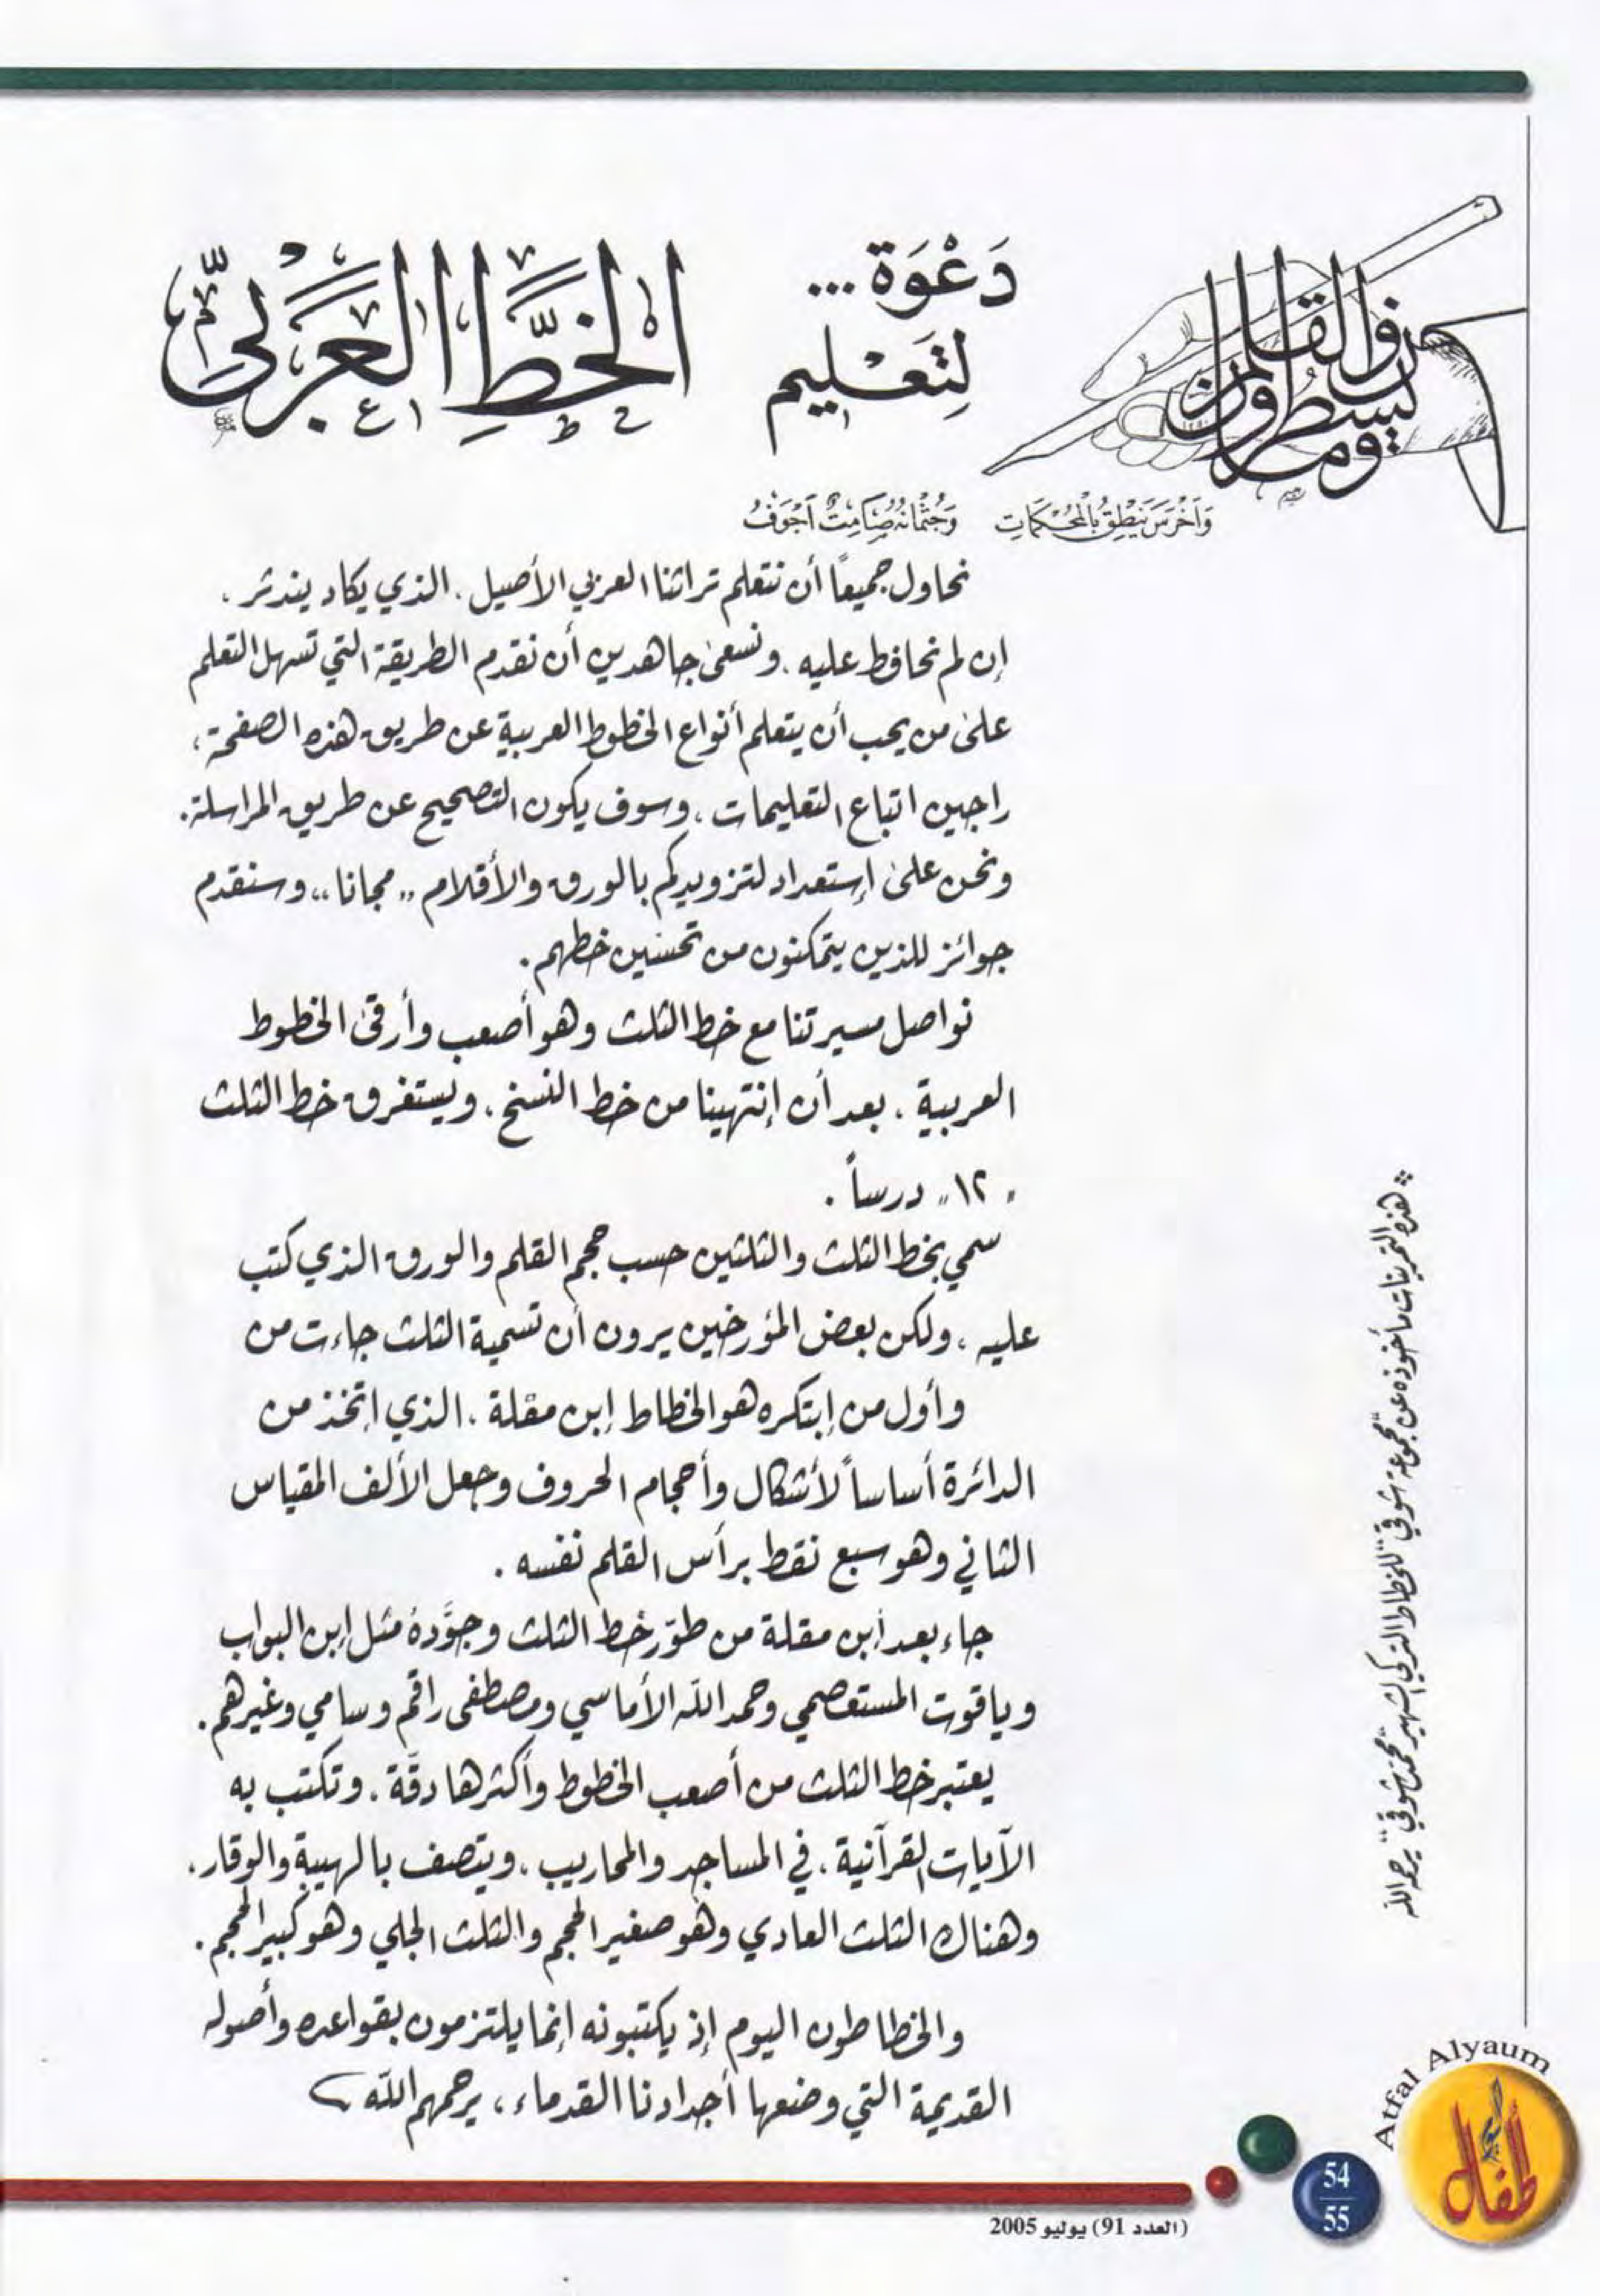 ن والقلم وما يسطرون
دَعْوَة ...
لِتَعْليم
الخطِّ العَرَبيّ
وَأَخْرَسَ يَنْطِقُ بِالْمُحْكَمَاتِ وَجُثْمَانُهُ صَامِتٌ أَجْوَفُ
نحاول جميعاً أن نتعلم تراثنا العربي الأصيل ، الذي يكاد يندثر ،
إن لم نحافظ عليه ، ونسعى جاهدين أن نقدم الطريقة التي تسهل التعلم
على من يحب أن يتعلم أنواع الخطوط العربية عن طريق هذه الصفحة ،
راجين اتباع التعليمات ، وسوف يكون التصحيح عن طريق المراسلة .
ونحن على إستعداد لتزويدكم بالورق والأقلام ,, مجانا ,, وسنقدم
جوائز للذين يتمكنون من تحسين خطهم .
نواصل مسيرتنا مع خط الثلث وهو أصعب وأرقى الخطوط
العربية ، بعد أن إنتهينا من خط النسخ ، ويستغرق خط الثلث
,, ١٢ ,, درساً .
سمي بخط الثلث والثلثين حسب حجم القلم والورق الذي كتب
عليه ، ولكن بعض المؤرخين يرون أن تسمية الثلث جاءت من
وأول من إبتكره هو الخطاط إبن مقلة ، الذي إتخذ من
الدائرة أساساً لأشكال وأحجام الحروف وجعل الألف المقياس
الثاني وهو سبع نقط برأس القلم نفسه .
جاء بعد أبن مقلة من طوّر خط الثلث وجوَّدهُ مثل إبن البواب
وياقوت المستعصمي وحمد الله الأماسي ومصطفى راقم وسامي وغيرهم .
يعتبر خط الثلث من أصعب الخطوط وأكثرها دقَّة ، وتكتب به
الآيات القرآنية ، في المساجد والمحاريب ، ويتصف بالهيبة والوقار .
وهناك الثلث العادي وهو صغير الحجم والثلث الجلي وهو كبير الحجم .
والخطاطون اليوم إذ يكتبونه إنما يلتزمون بقواعده وأصوله
القديمة التي وضعها أجدادنا القدماء ، يرحمهم الله
* هذه التمرينات مأخوذه عن "مجموعة شوقي" للخطاط التركي الشهير "محمد شوقي" يرحمه الله
Atfal Alyaum
أطفال اليوم
54
55
(العدد 91) يوليو 2005